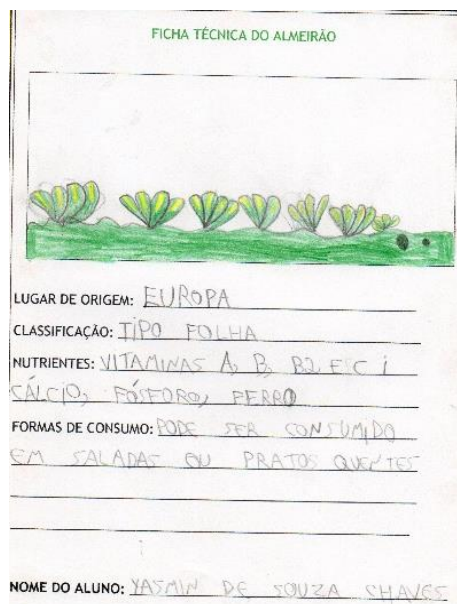 FICHA TÉCNICA DO ALMEIRÃO
LUGAR DE ORIGEM: EUROPA
CLASSIFICAÇÃO: TIPO FOLHA
NUTRIENTES: VITAMINAS A, B, B2 E C i
CÁLCIO, FÓSFORO, FERRO
FORMAS DE CONSUMO: PODE SER CONSUMIDO
EM SALADAS OU PRATOS QUENTES
NOME DO ALUNO: YASMIN DE SOUZA CHAVES